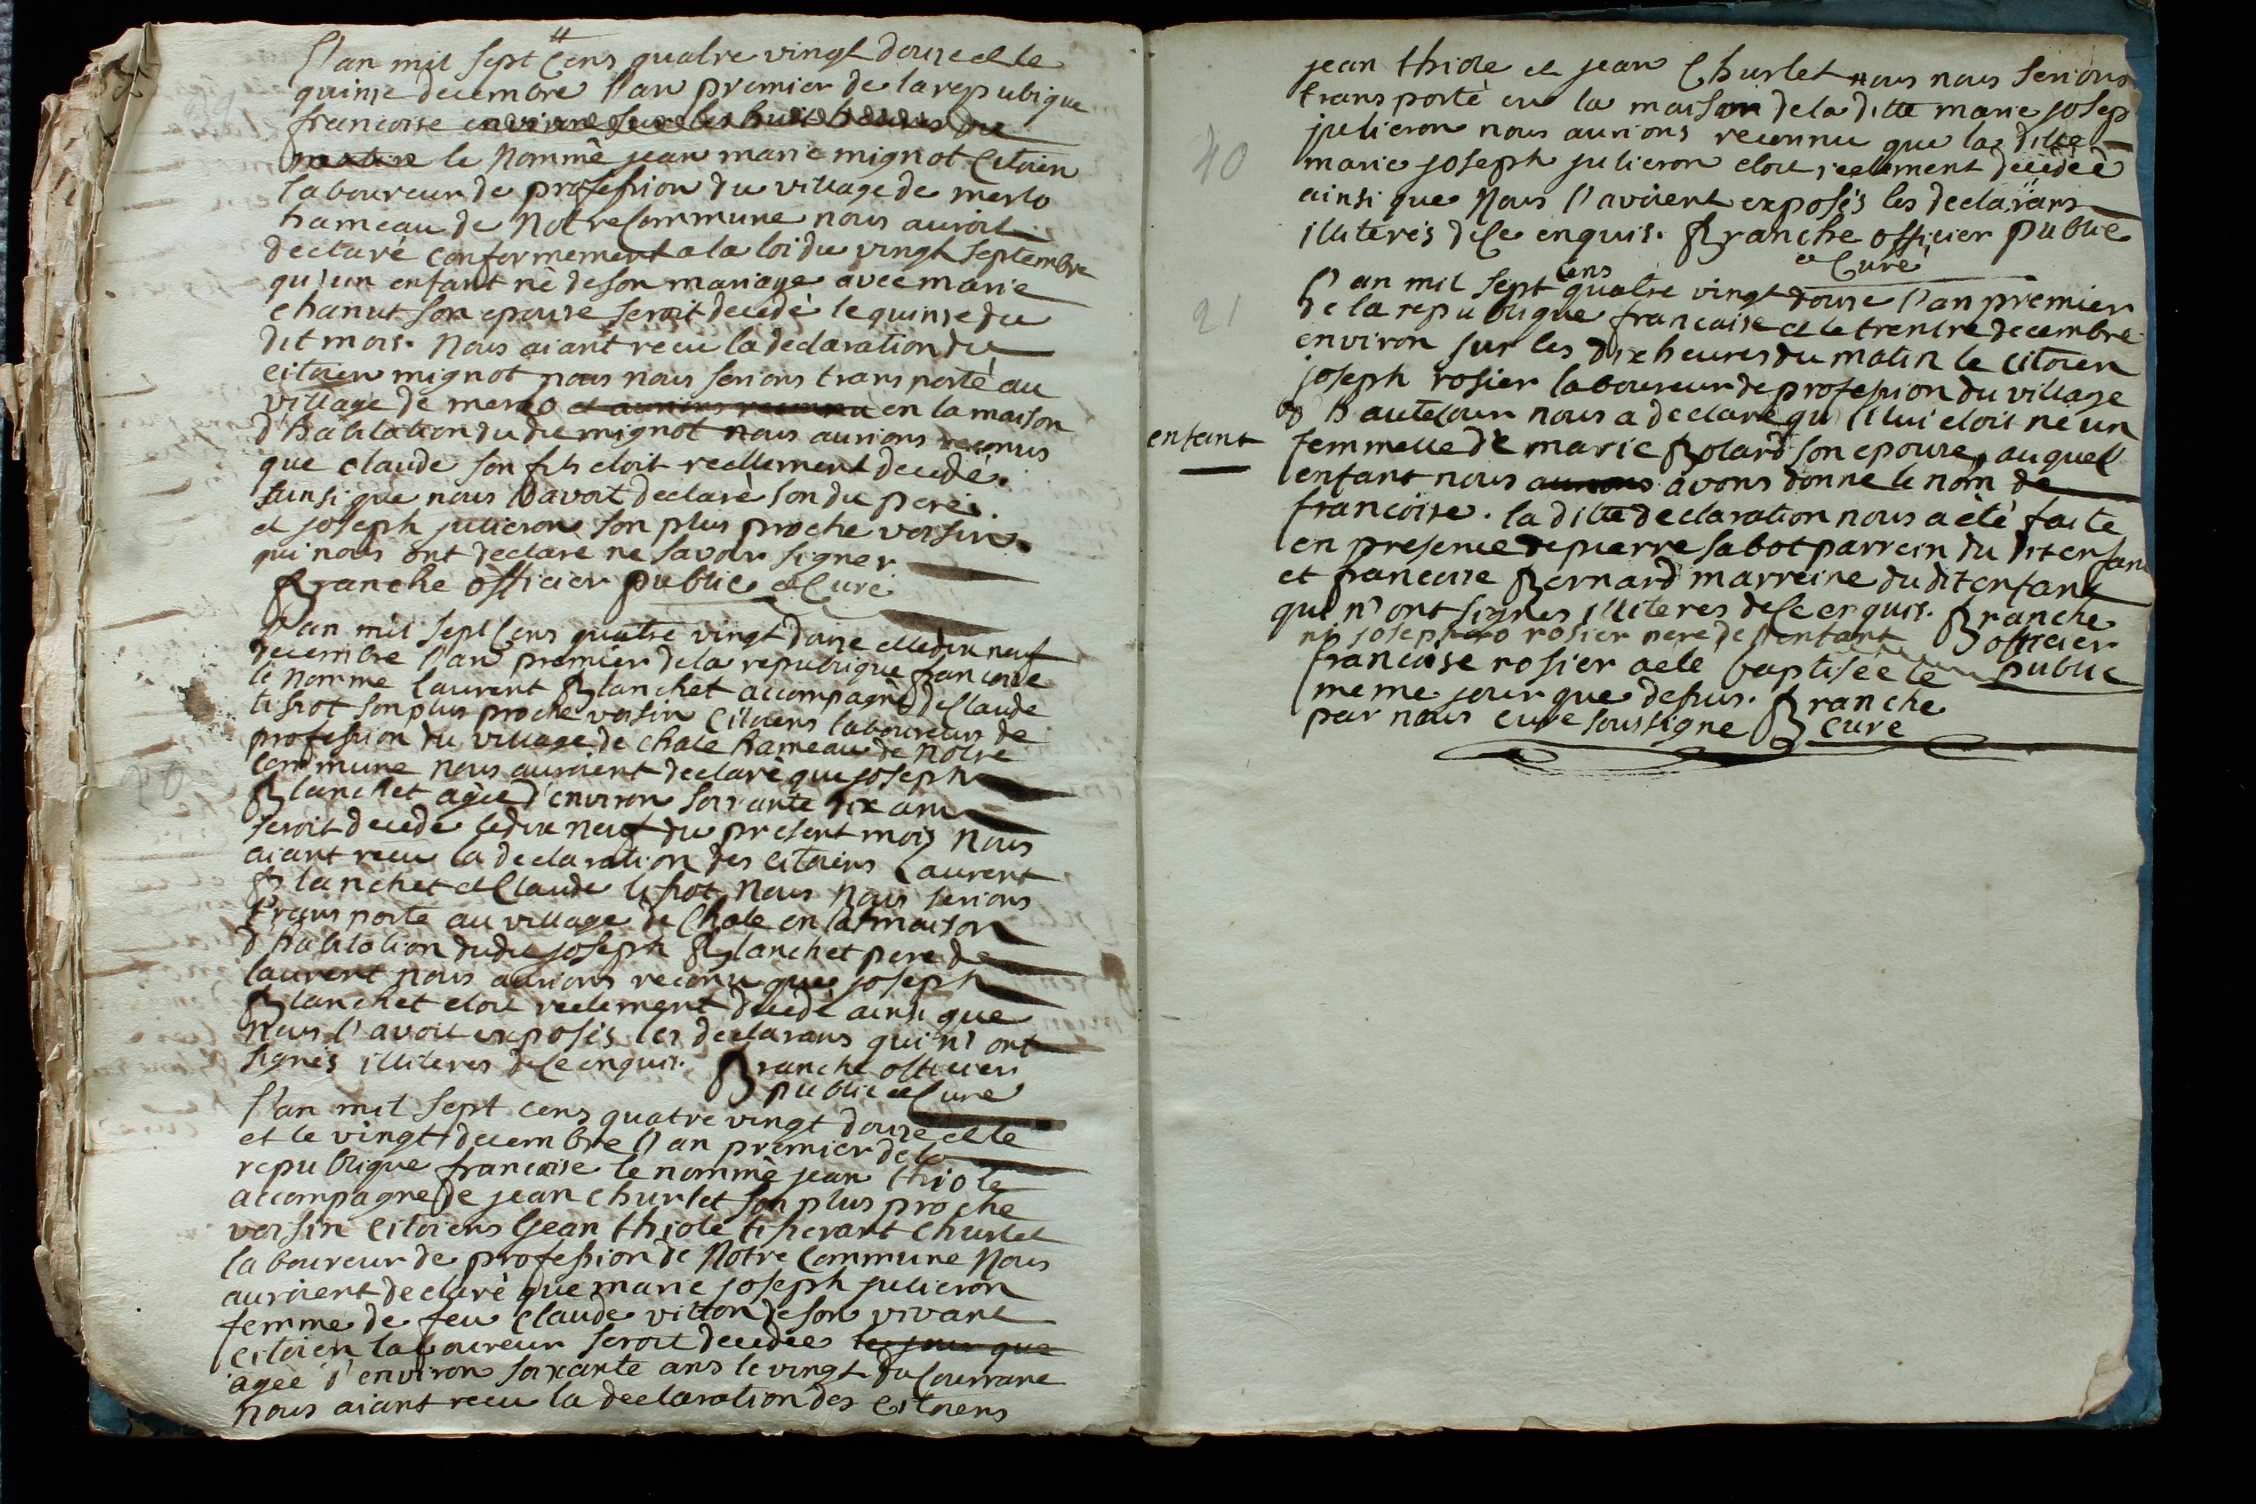 L'an mil sept cens quatre vingt douze et le
quinse decembre l'an premier de la repubique
francoise environ sur les huit heures du
matin le Nommè jean marie mignot Citoien
laboureur de profession du village de merlo
hameau de Notre Commune nous auroit
declaré conformement a la loi du vingt septembre
qu'un enfant nè de son mariage avec marie
chanut son epouse seroit decedè le quinse du
dit mois. Nous aiant recu la declaration du
citoien mignot nous nous serions transportè au
village de merlo et aurions reconnu en la maison
d'habitation du dit mignot nous aurions reconus
que claude son fils etoit reellement decedé.
ainsi que nous l'avoit declarè son dit pere.
et joseph julieron son plus proche voisin.
qui nous ont declare ne savoir signer
Branche officier public et Curé
L'an mil sept Cens quatre vingt douse et le dix neuf
decembre l'an premier de la republique francoise
le nomme laurent Blanchet accompagné de Claude
tissot son plus proche voisin Citoiens laboureurs de
profession du village de chale hameau de Notre
Commune nous auroient declarè que joseph
Blanchet agèe d'environ soixante dix ans
seroit decede le dix neuf du present mois Nous
aiant recu la declaration des citoiens Laurent
Blanchet et Claude tissot Nous Nous serions
transporte au village de Chale en la maison
d'habitation du dit joseph Blanchet pere de
laurent nous aurions reconu que joseph
Blanchet etoit reelement decedé ainsi que
Nous l'avoit exposés les declarans qui n'ont
signés illiteres de ce enquis. Branche officier
public et Curé
L'an mil sept cens quatre vingt douse et le
et le vingt decembre l'an premier de la
republique francoise le nommè jean thiole
accompagne de jean churlet son plus proche
voisin citoiens jean thiole tisserant churlet
laboureur de profession de Notre Commune Nous
auroient declarè que marie joseph julieron
femme de feu Claude vitton de son vivant
citoien laboureur seroit decedèe le jour que
agèe d'environ soixante ans le vingt du Courrant
Nous aiant recu la declaration des Citoiens
jean thiole et jean Churlet nous nous serions
transportè en la maison de la ditte marie josep
julieron nous aurions reconnu que la ditte
40
marie joseph julieron etoit reelement decedeè
ainsi que Nous l'avoient exposés les declarans
illiterés de ce enquis. Branche officier public
et Curè
L'an mil sept cens quatre vingt douse l'an premier
21
de la republique francaise et le trentre decembre
environ sur les dix heures du matin le citoien
joseph rosier laboureur de profession du village
de hautecour nous a declare qu'il lui etoit nè un
enfant
femmelle de marie Bolard son epouse, auquel
enfant nous aurions avons donne le nom de
francoise. la ditte declaration nous a ètè faite
en presence de pierre sabot parrein du dit enfant
et francoise Bernard marreine du dit enfant
qui n'ont signes illiteres de ce enquis. Branche
ni joseph rosier pere de l'enfant officier
francoise rosier a ete baptisée le public
meme jour que dessus. Branche
par nous cure soussigne cure